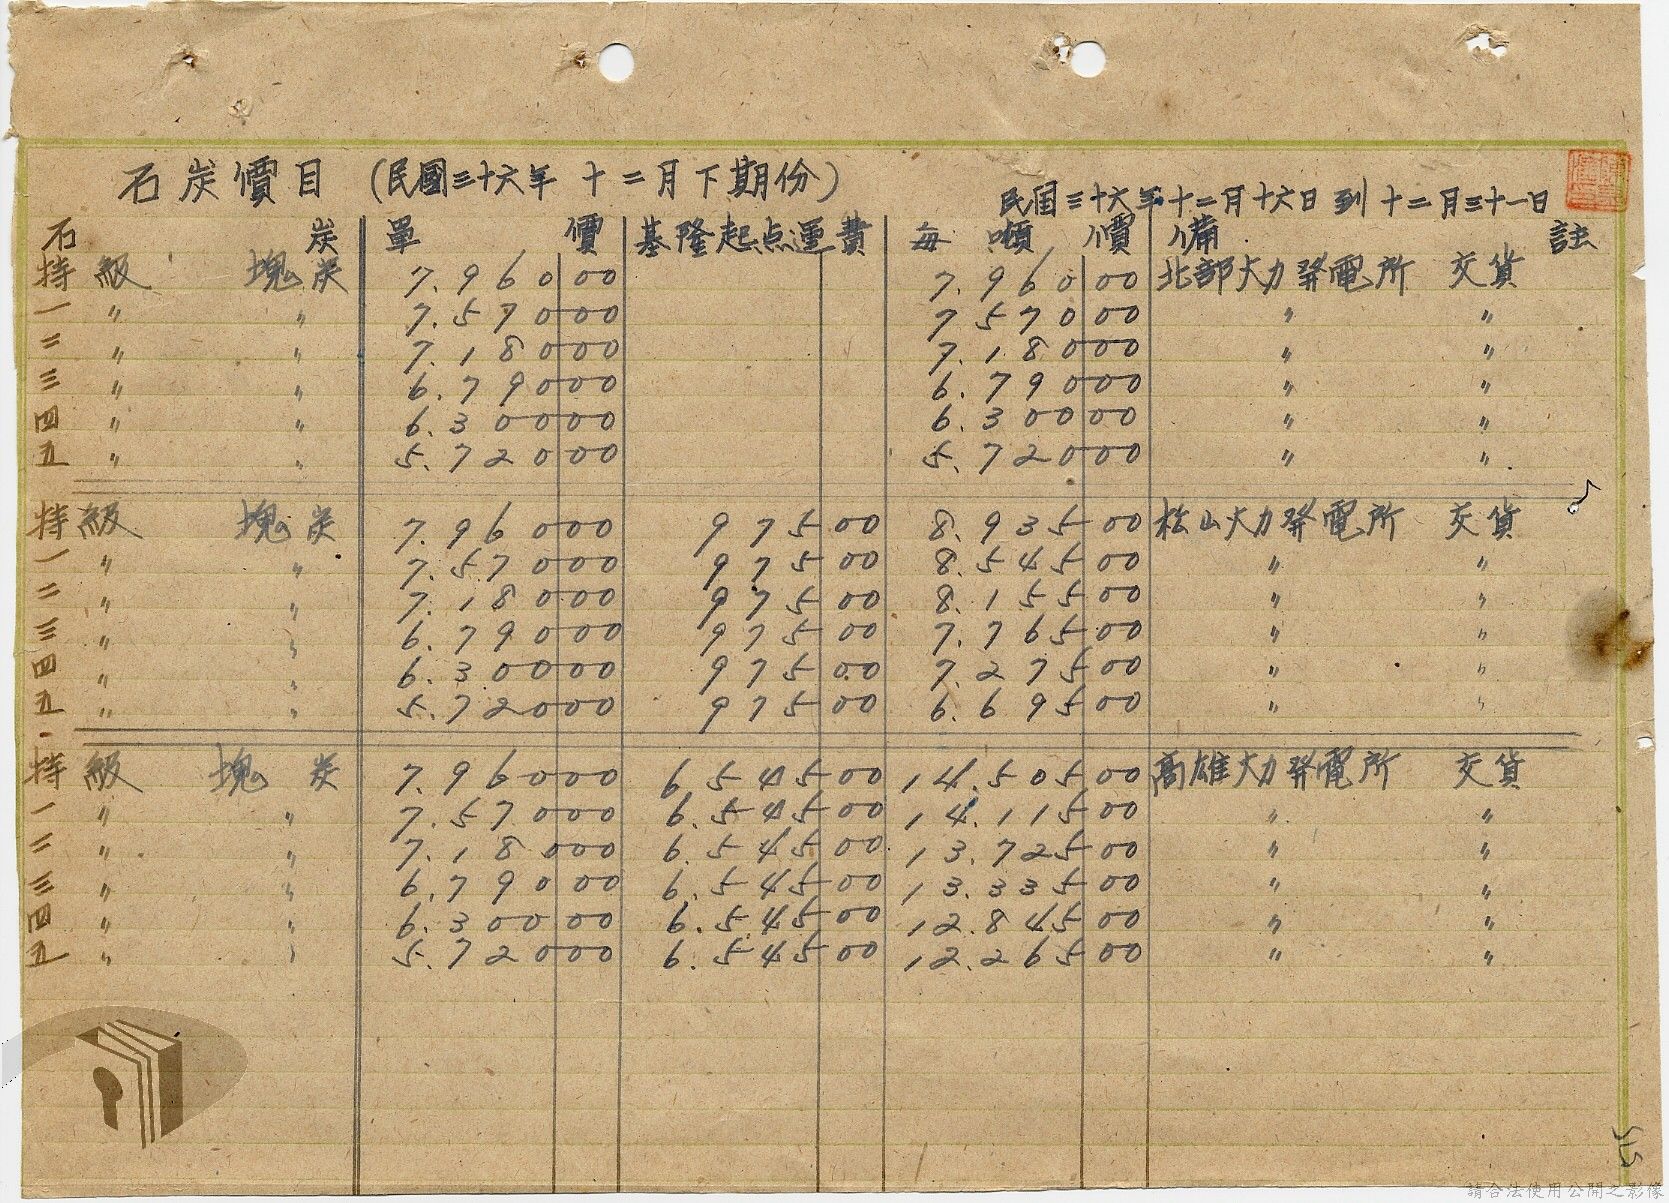 石炭價目 (民國三十六年 十二月下期份)
民国三十六年十二月十六日到十二月三十一日
石炭 單價 基隆起点運費 每噸價 備註
特級 塊炭 7.960 00 7.960 00 北部火力発電所 交貨
一〃 〃 7.570 00 7 570 00 〃 〃
二〃 〃 7.180 00 7.180 00 〃 〃
三〃 〃 6.790 00 6.790 00 〃 〃
四〃 〃 6.300 00 6.300 00 〃 〃
五〃 〃 5.720 00 5.720 00 〃 〃
特級 塊炭 7.960 00 975 00 8.935 00 松山火力発電所 交貨
一〃 〃 7.570 00 975 00 8.545 00 〃 〃
二〃 〃 7.180 00 975 00 8.155 00 〃 〃
三〃 〃 6.790 00 975 00 7.765 00 〃 〃
四〃 〃 6.300 00 975 00 7.275 00 〃 〃
五〃 〃 5.720 00 975 00 6.695 00 〃 〃
特級 塊炭 7.960 00 6 545 00 14.505 00 高雄火力発電所 交貨
一〃 〃 7.570 00 6.545 00 14.115 00 〃 〃
二〃 〃 7.180 00 6.545 00 13.725 00 〃 〃
三〃 〃 6.790 00 6.545 00 13.335 00 〃 〃
四〃 〃 6.300 00 6.545 00 12.845 00 〃 〃
五〃 〃 5.720 00 6.545 00 12.265 00 〃 〃
請合法使用公開之影像